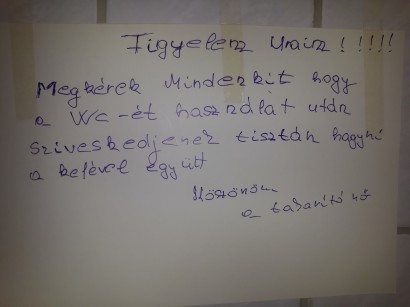 Figyelem Uraim! !!!!
Megkérek Mindenkit hogy
a Wc-ét használat után
Sziveskedjenek tisztán hagyni
a kefével együtt
Köszönöm
a takarító nő